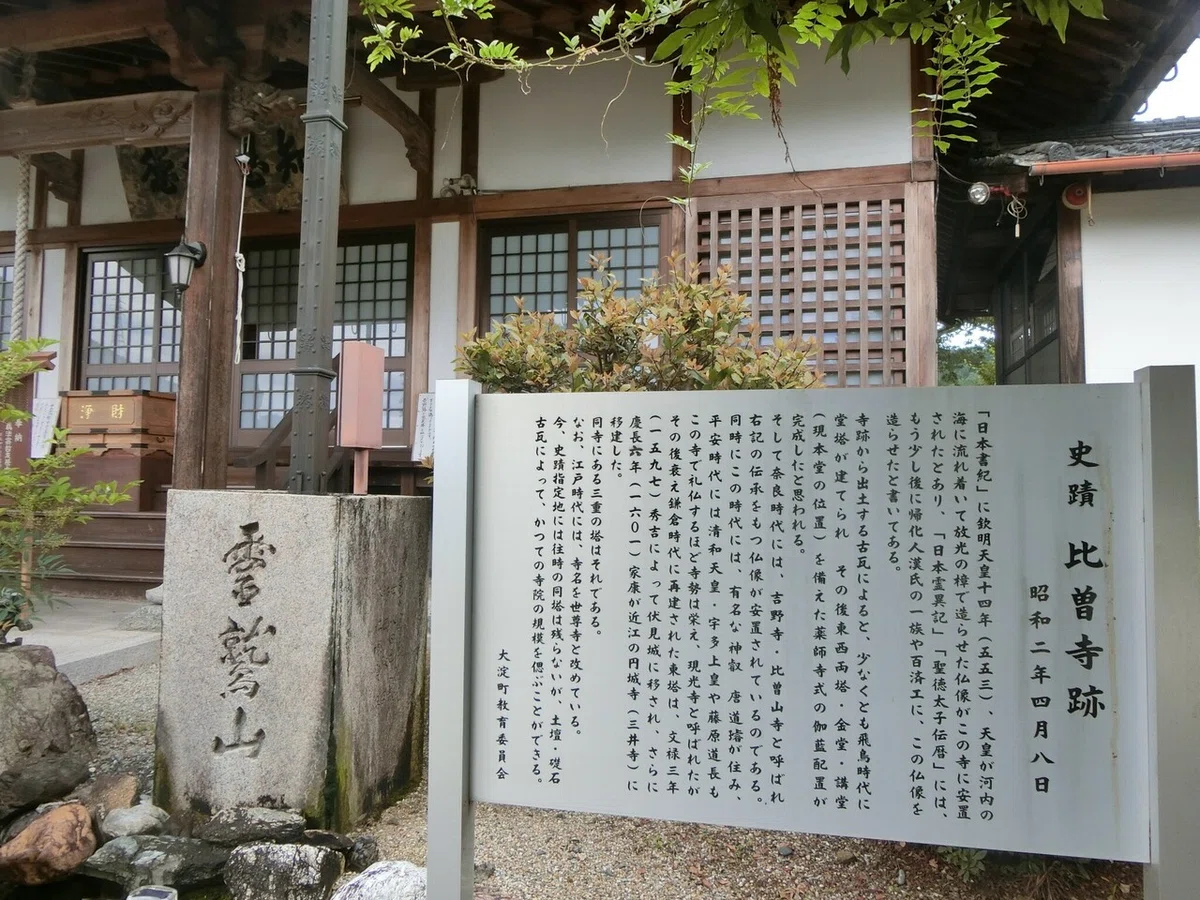 史蹟 比曽寺跡
昭和二年四月八日
「日本書紀」に欽明天皇十四年（五五三）、天皇が河内の
海に流れ着いて放光の樟で造らせた仏像がこの寺に安置
されたとあり、「日本霊異記」「聖徳太子伝暦」には、
もう少し後に帰化人漢氏の一族や百済工に、この仏像を
造らせたと書いてある。
寺跡から出土する古瓦によると、少なくとも飛鳥時代に
堂塔が建てられ その後東西両塔・金堂・講堂
（現本堂の位置）を備えた薬師寺式の伽藍配置が
完成したと思われる。
そして奈良時代には、吉野寺・比曽山寺と呼ばれ
右記の伝承をもつ仏像が安置されているのである。
同時にこの時代には、有名な神叡 唐道璿が住み、
平安時代には清和天皇・宇多上皇や藤原道長も
この寺で礼仏するほど寺勢は栄え、現光寺と呼ばれたが
その後衰え鎌倉時代に再建された東塔は、文禄三年
（一五九七）秀吉によって伏見城に移され、さらに
慶長六年（一六〇一）家康が近江の円城寺（三井寺）に
移建した。
同寺にある三重の塔はそれである。
なお、江戸時代には、寺名を世尊寺と改めている。
今、史蹟指定地には往時の同塔は残らないが、土壇・礎石
古瓦によって、かつての寺院の規模を偲ぶことができる。
大淀町教育委員会
霊鷲山
浄財
奉納